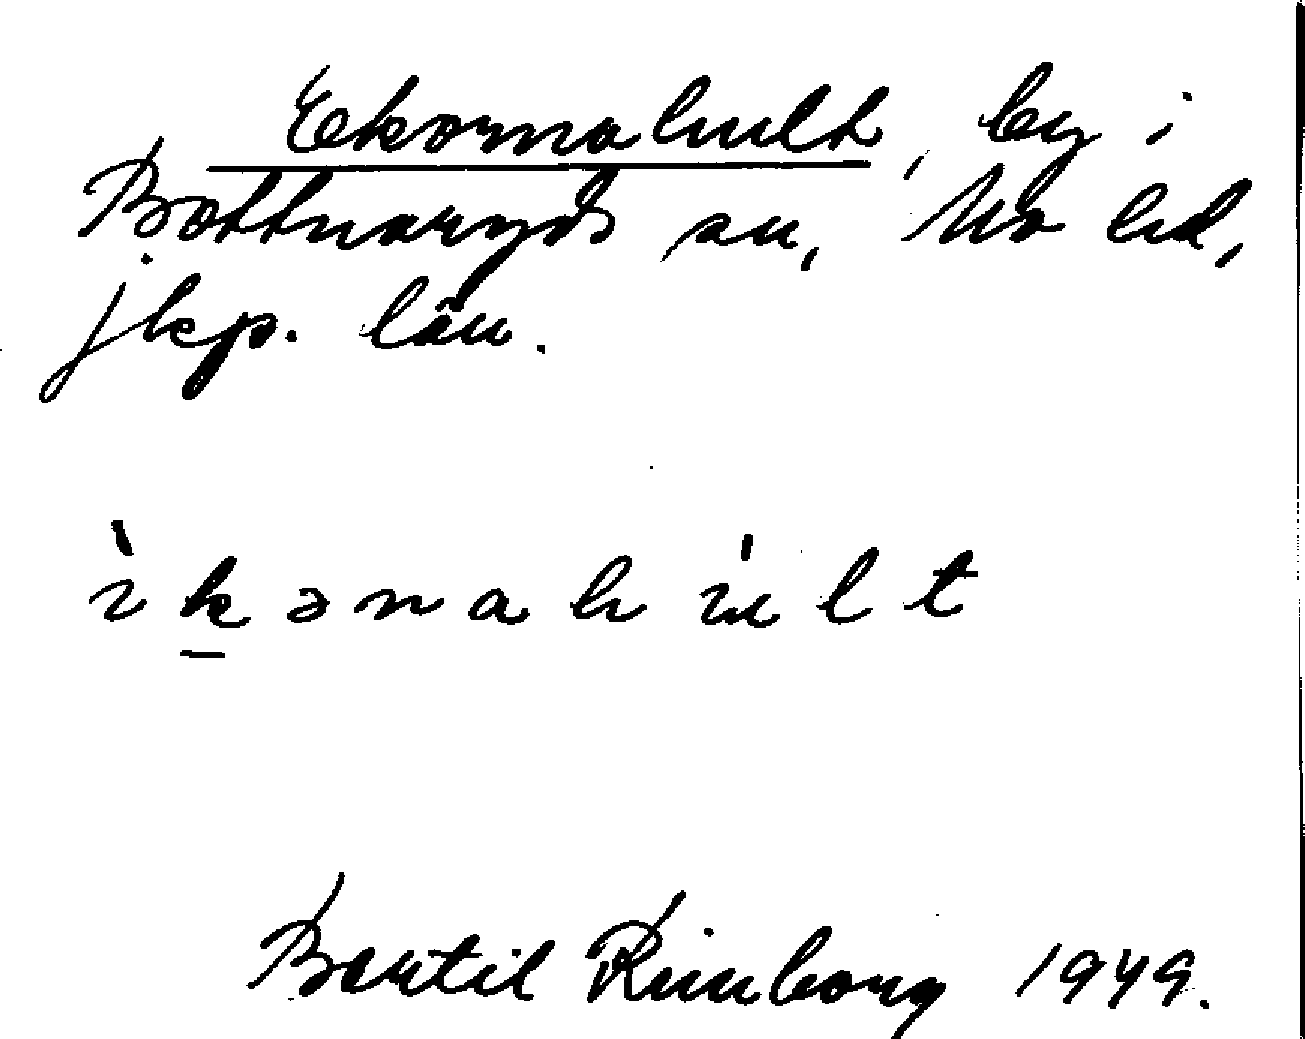 Ekornahult, by i
Bottnaryds sn, Mo hd,
Jkp. län.
ìkənahu̇lt
Bertil Rimborg 1949.